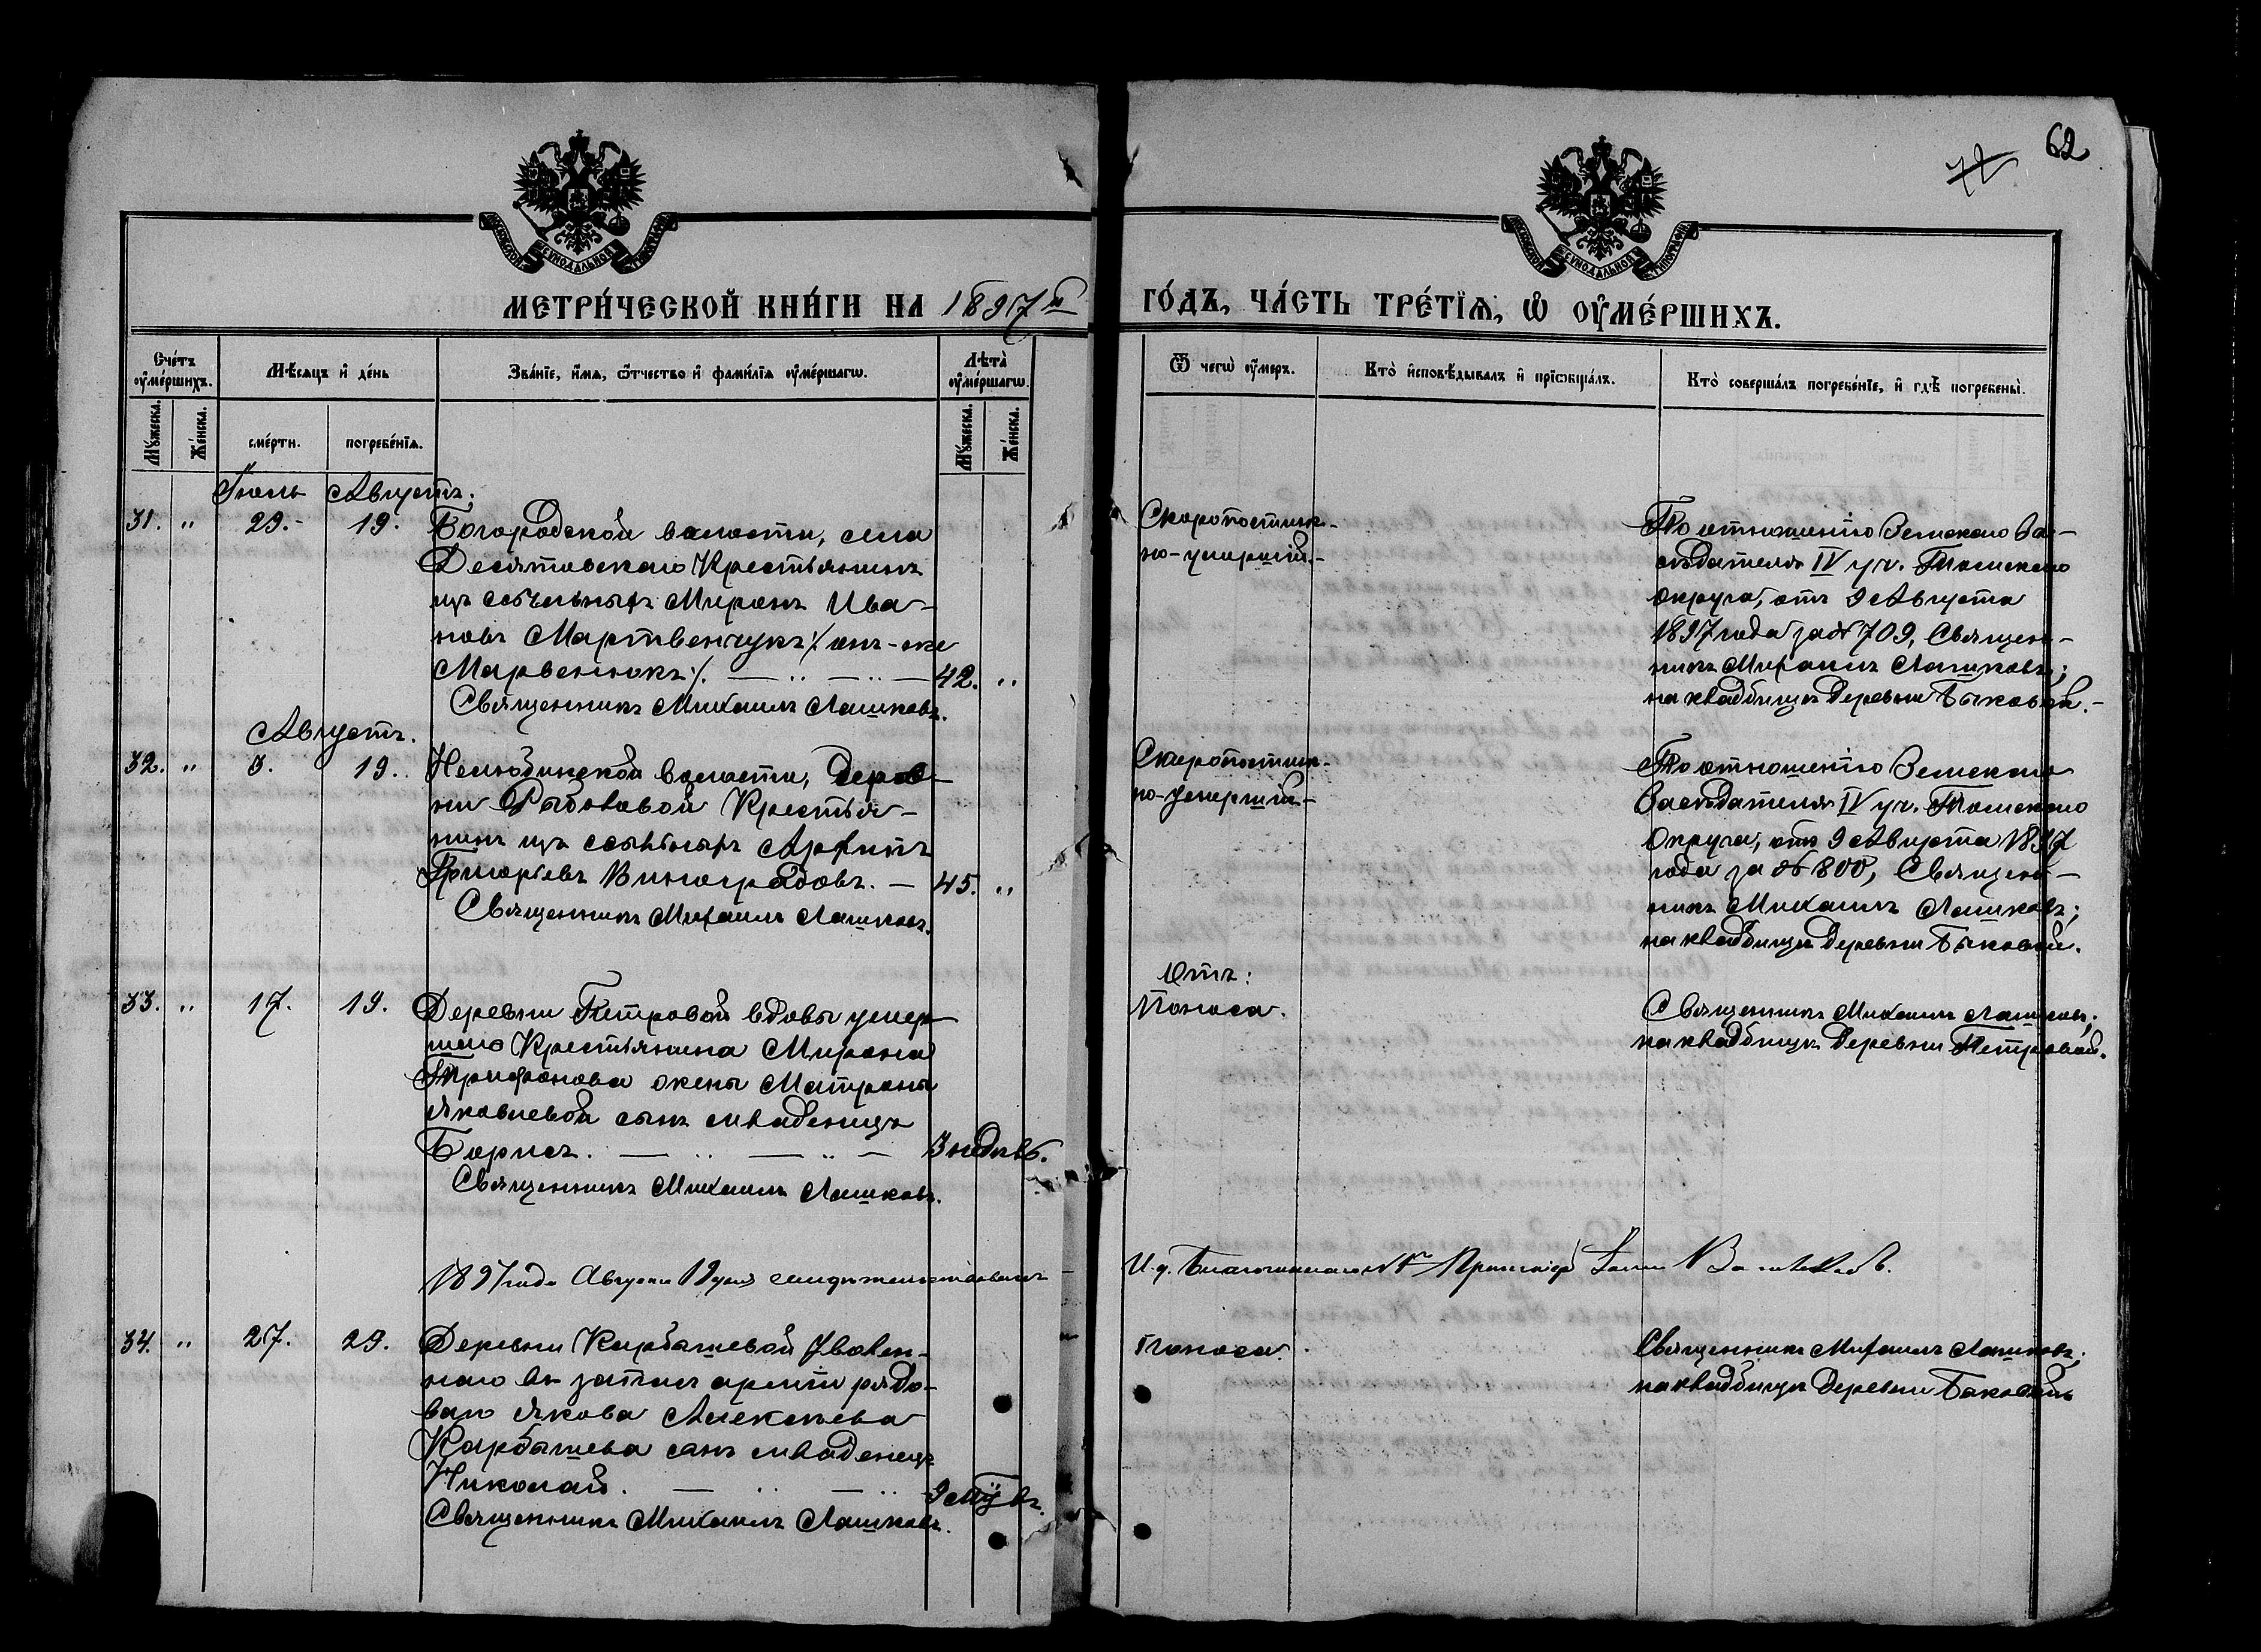 62
72
МОСКОВСКОЙ СѴНОДАЛЬНОЙ ТИПОГРАФІИ
МОСКОВСКОЙ СѴНОДАЛЬНОЙ ТИПОГРАФІИ
МЕТРИ́ЧЕСКОЙ КНИ́ГИ НА 1897й ГО́ДЪ, ЧА́СТЬ ТРЕ́ТЇѦ, Ѽ ОУ҆МЕ́РШИХЪ.
Сче́тъ оу҆ме́ршихъ.
Мѣ́сяцъ и҆ де́нь
Зва́нїе, и҆́мя, ѻ҆́тчество и҆ фами́лїя оу҆ме́ршагѡ.
Лѣта̀ оу҆ме́ршагѡ.
Ѿ чегѡ̀ оу҆́меръ.
Кто̀ и҆сповѣ́дывалъ и҆ прїѡбща́лъ.
Кто̀ соверша́лъ погребе́нїе, и҆ гдѣ̀ погребены̀.
Мꙋ́жеска.
Же́нска.
сме́рти.
погребе́нїя.
Мꙋ́жеска.
Же́нска.
Іюль Августъ.
31. " 29. 19. Богородской волости, села
Десятовскаго Крестьянинъ
изъ ссыльныхъ Миронъ Ива-
новъ Мартвенчукъ /: онъ-же
Марвенюкъ :/. 42. "
Священникъ Михаилъ Лашковъ.
Скоропостиж-
но-умершій.
По отношенію Земскаго За-
сѣдателя IV уч. Томскаго
округа, отъ 9 Августа
1897 года за № 709, Священ-
никъ Михаилъ Лашковъ;
на кладбищѣ деревни Быковой.
Августъ.
32. " 3. 19. Нелюбинской волости, Дерев-
ни Рыбаловой Крестья-
нинъ изъ ссыльныхъ Архипъ
Григорьевъ Виноградовъ. 45. "
Священникъ Михаилъ Лашковъ.
Скоропостиж-
но-умершій.
По отношенію Земскаго
Засѣдателя IV уч. Томскаго
Округа, отъ 9 Августа 1897
года за № 800, Священ-
никъ Михаилъ Лашковъ;
на кладбищѣ деревни Быковой.
33. " 17. 19. Деревни Петровой вдовы умер-
шаго Крестьянина Мирона
Трифонова жены Матроны
Яковлевой сынъ младенецъ
Борисъ. 3 недѣль.
Священникъ Михаилъ Лашковъ.
Отъ:
Поноса.
Священникъ Михаилъ Лашковъ;
на кладбищѣ деревни Петровой.
1897 года Августа 19 дня свидѣтельствовалъ
И. д. Благочиннаго
34. " 27. 29. Деревни Карбышевой Уволен-
наго въ запасъ арміи рядо-
ваго Якова Алексѣева
Карбышева сынъ младенецъ
Николай. 9 мцвъ.
Священникъ Михаилъ Лашковъ.
Поноса.
Священникъ Михаилъ Лашковъ;
на кладбищѣ деревни Быковой